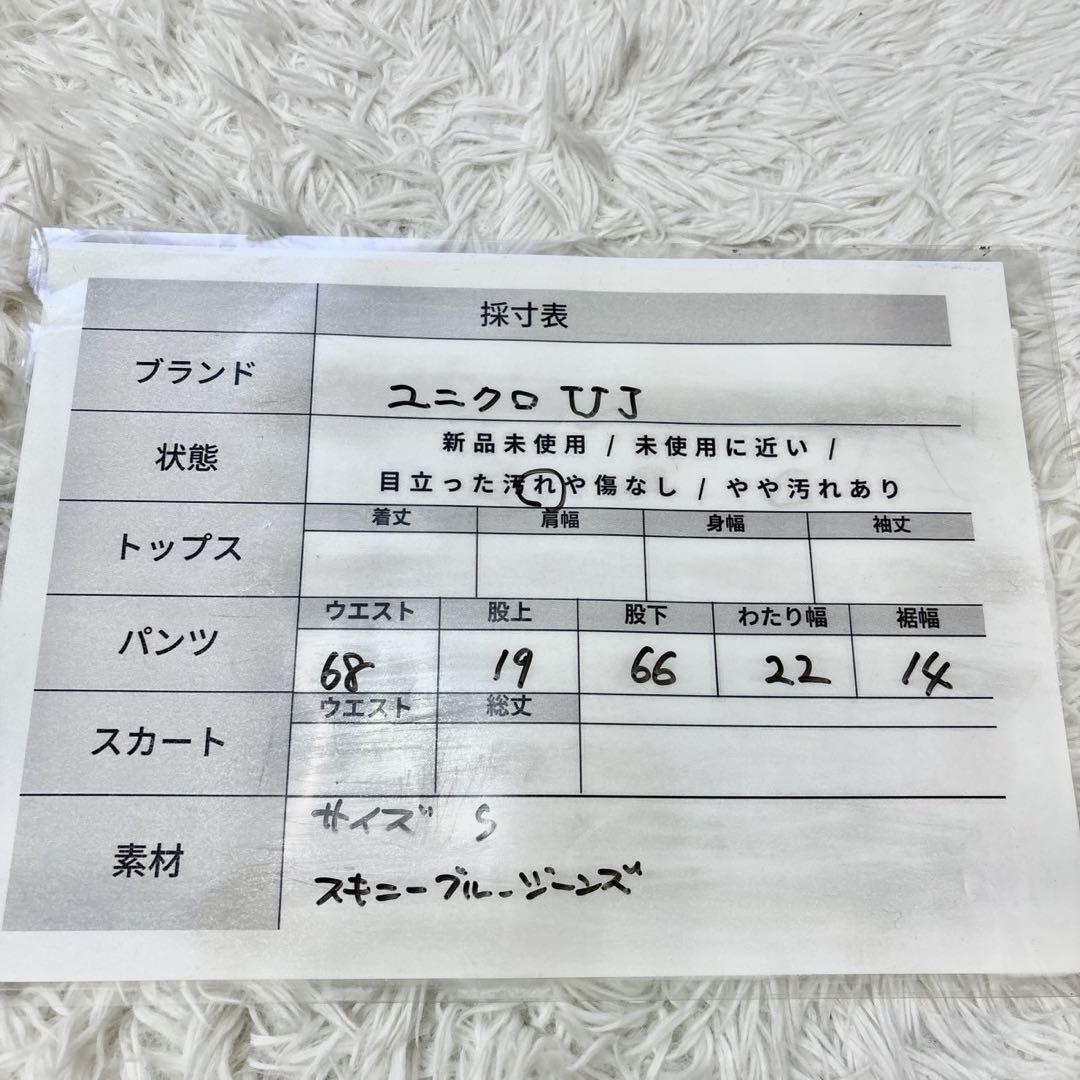 採寸表
ブランド
ユニクロ UJ
状態
新品未使用 / 未使用に近い /
目立った汚れや傷なし / やや汚れあり
トップス
着丈 肩幅 身幅 袖丈
パンツ
ウエスト 股上 股下 わたり幅 裾幅
68 19 66 22 14
スカート
ウエスト 総丈
素材
サイズ S
スキニーブルージーンズ